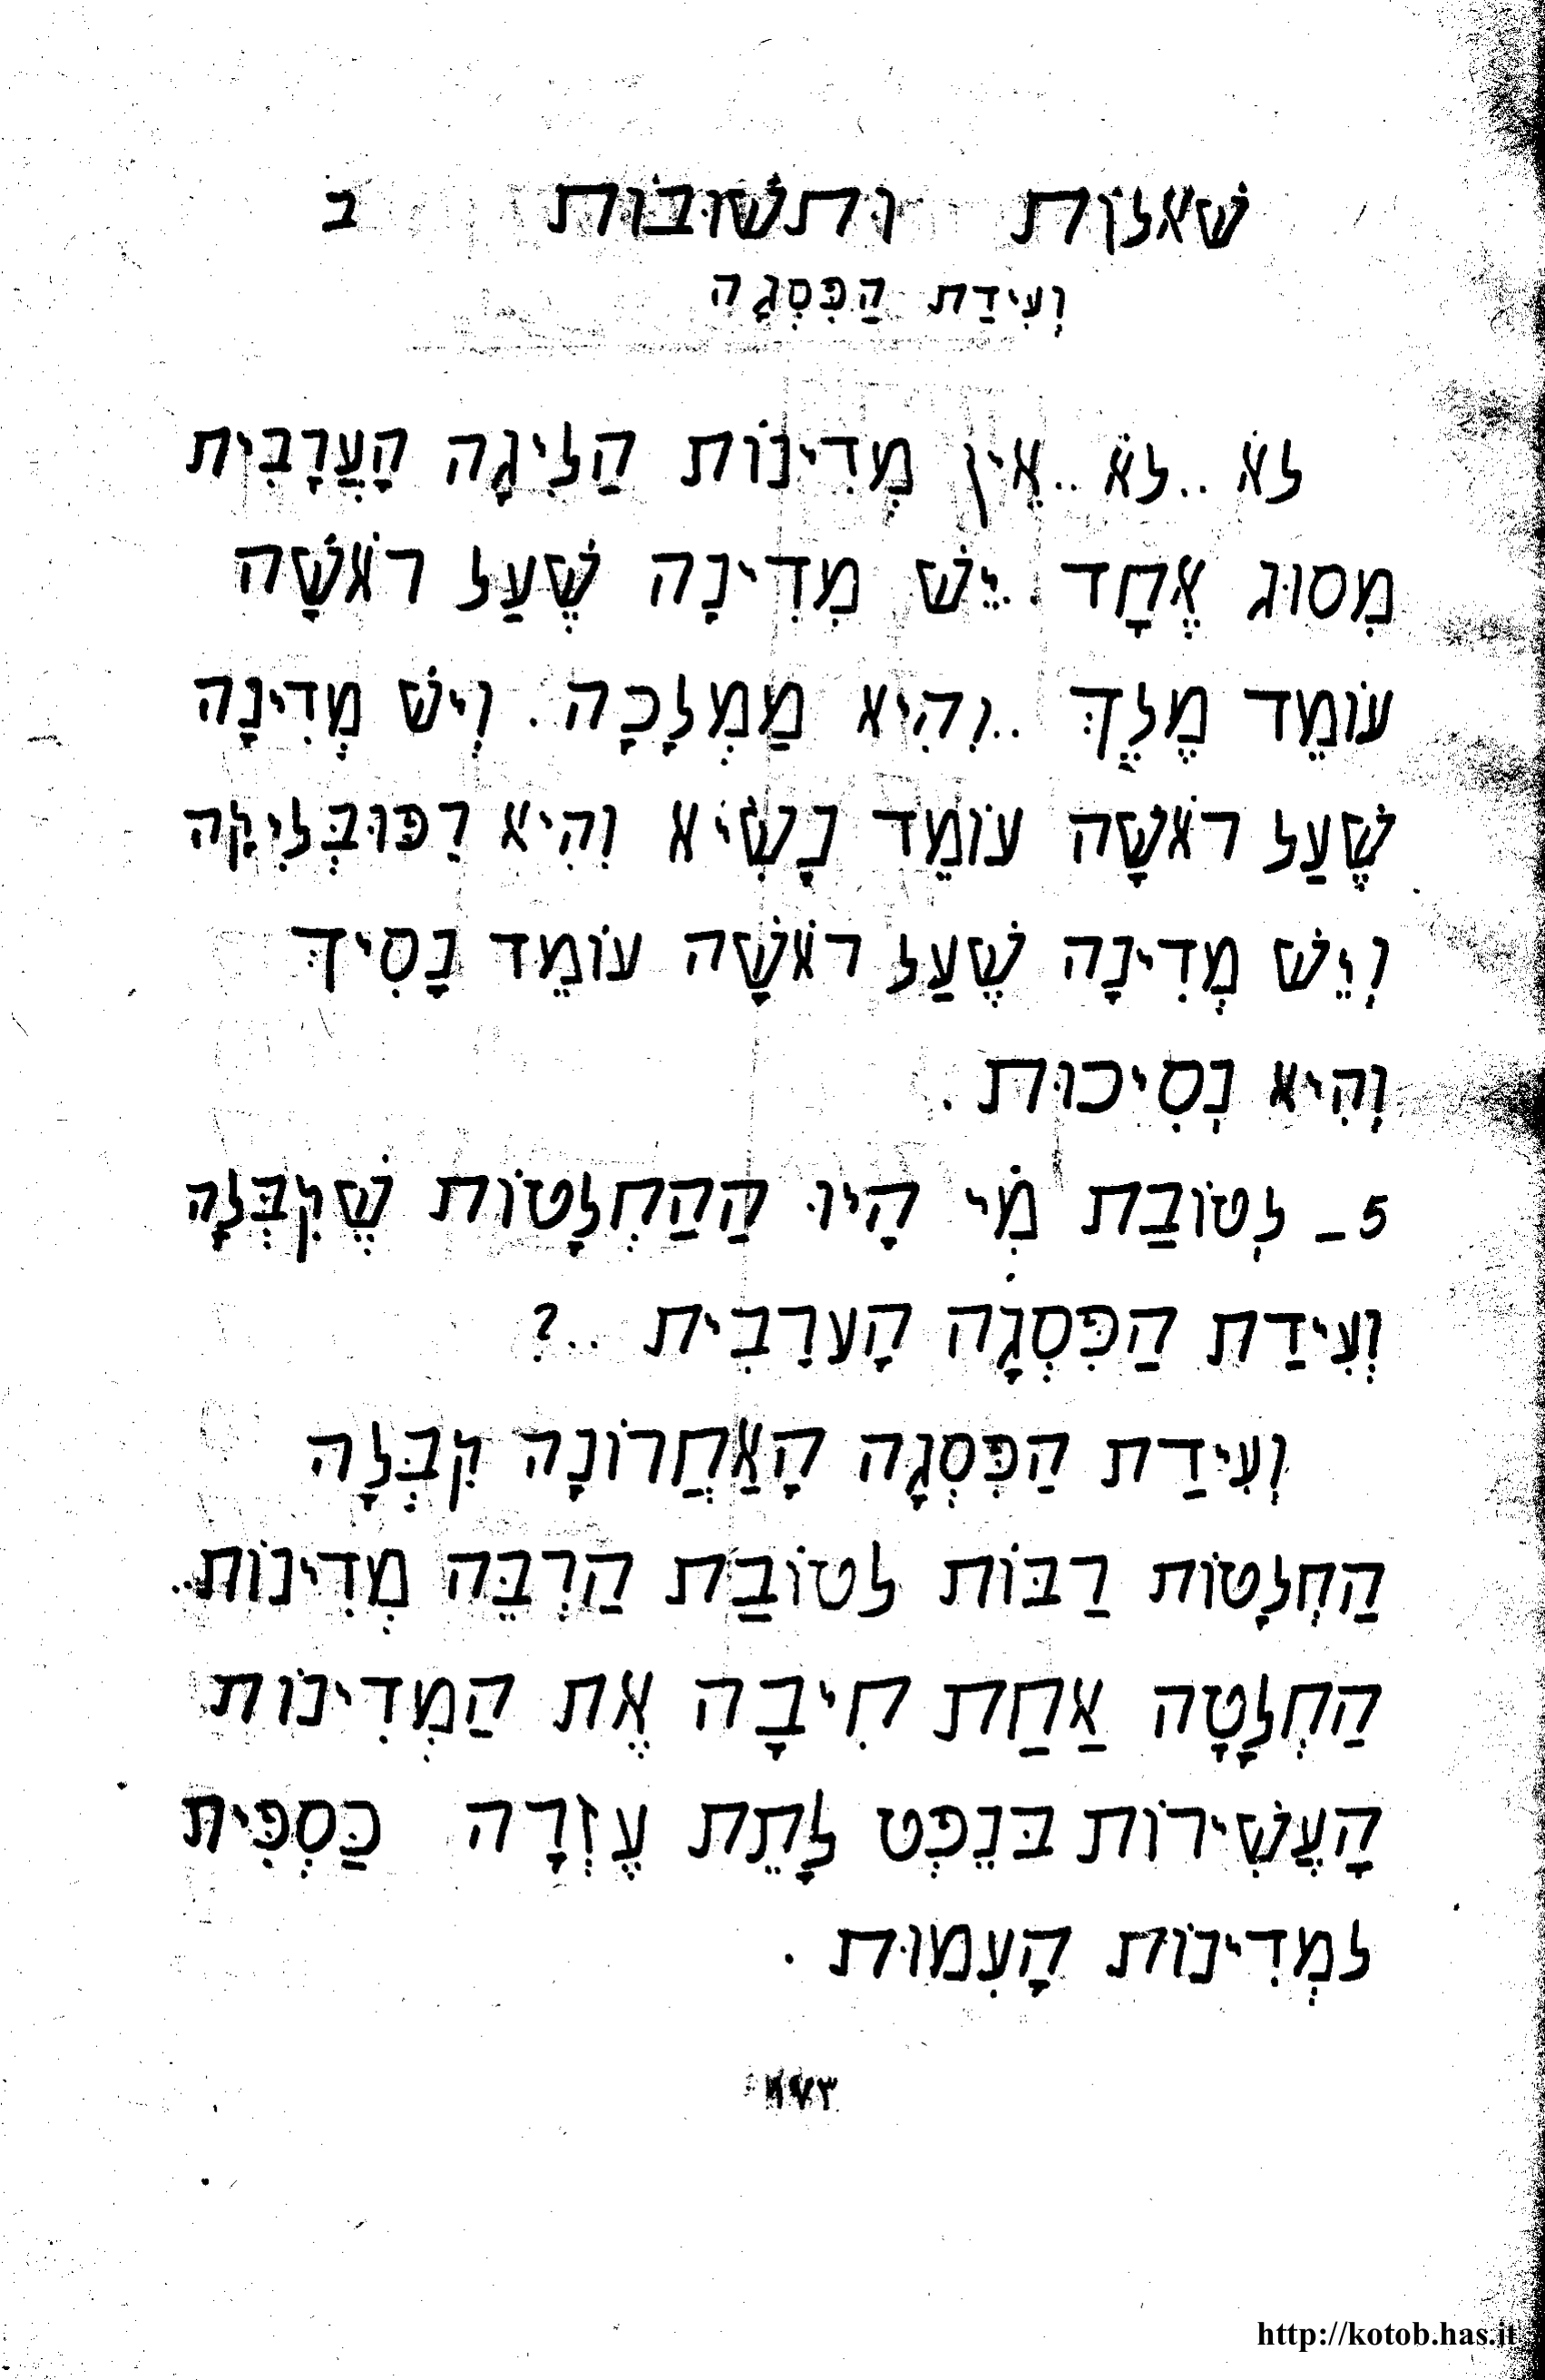 שאלוֹת וּתשׁוּבוֹת ב
וְעִידַת הַפִּסְגָה
לֹא ..לֹא ..אֵין מְדִינוֹת הַלִיגָה הָעֲרָבִית
מִסוּג אֶחָד . יֵשׁ מְדִינָה שֶׁעַל רֹאשָׁה
עוֹמֵד מֶלֶךְ ..וְהִיא מַמְלָכָה . וְיֵשׁ מְדִינָה
שֶׁעַל רֹאשָׁה עוֹמֵד נָשִׂיא וְהִיא רֵפּוּבְּלִיקָה
וְיֵשׁ מְדִינָה שֶׁעַל רֹאשָׁה עוֹמֵד נָסִיךְ
וְהִיא נְסִיכוּת .
5 ـ לְטוֹבַת מִי הָיוּ הַהַחְלָטוֹת שֶׁקִבְּלָה
וְעִידַת הַפִּסְגָה הָערַבִית ..?
וְעִידַת הַפִּסְגָה הָאַחֲרוֹנָה קִבְּלָה
הַחְלָטוֹת רַבּוֹת לטוֹבַת הַרְבֵּה מְדִינוֹת..
הַחְלָטָה אַחַת חִיבָה אֶת הַמְדִינוֹת
הָעֲשִׁירוֹת בּנֵפְט לָתֵת עֶזְרָה כַּסְפִּית
למְדִינוֹת הָעִמוּת .
١٧٣
http://kotob.has.it